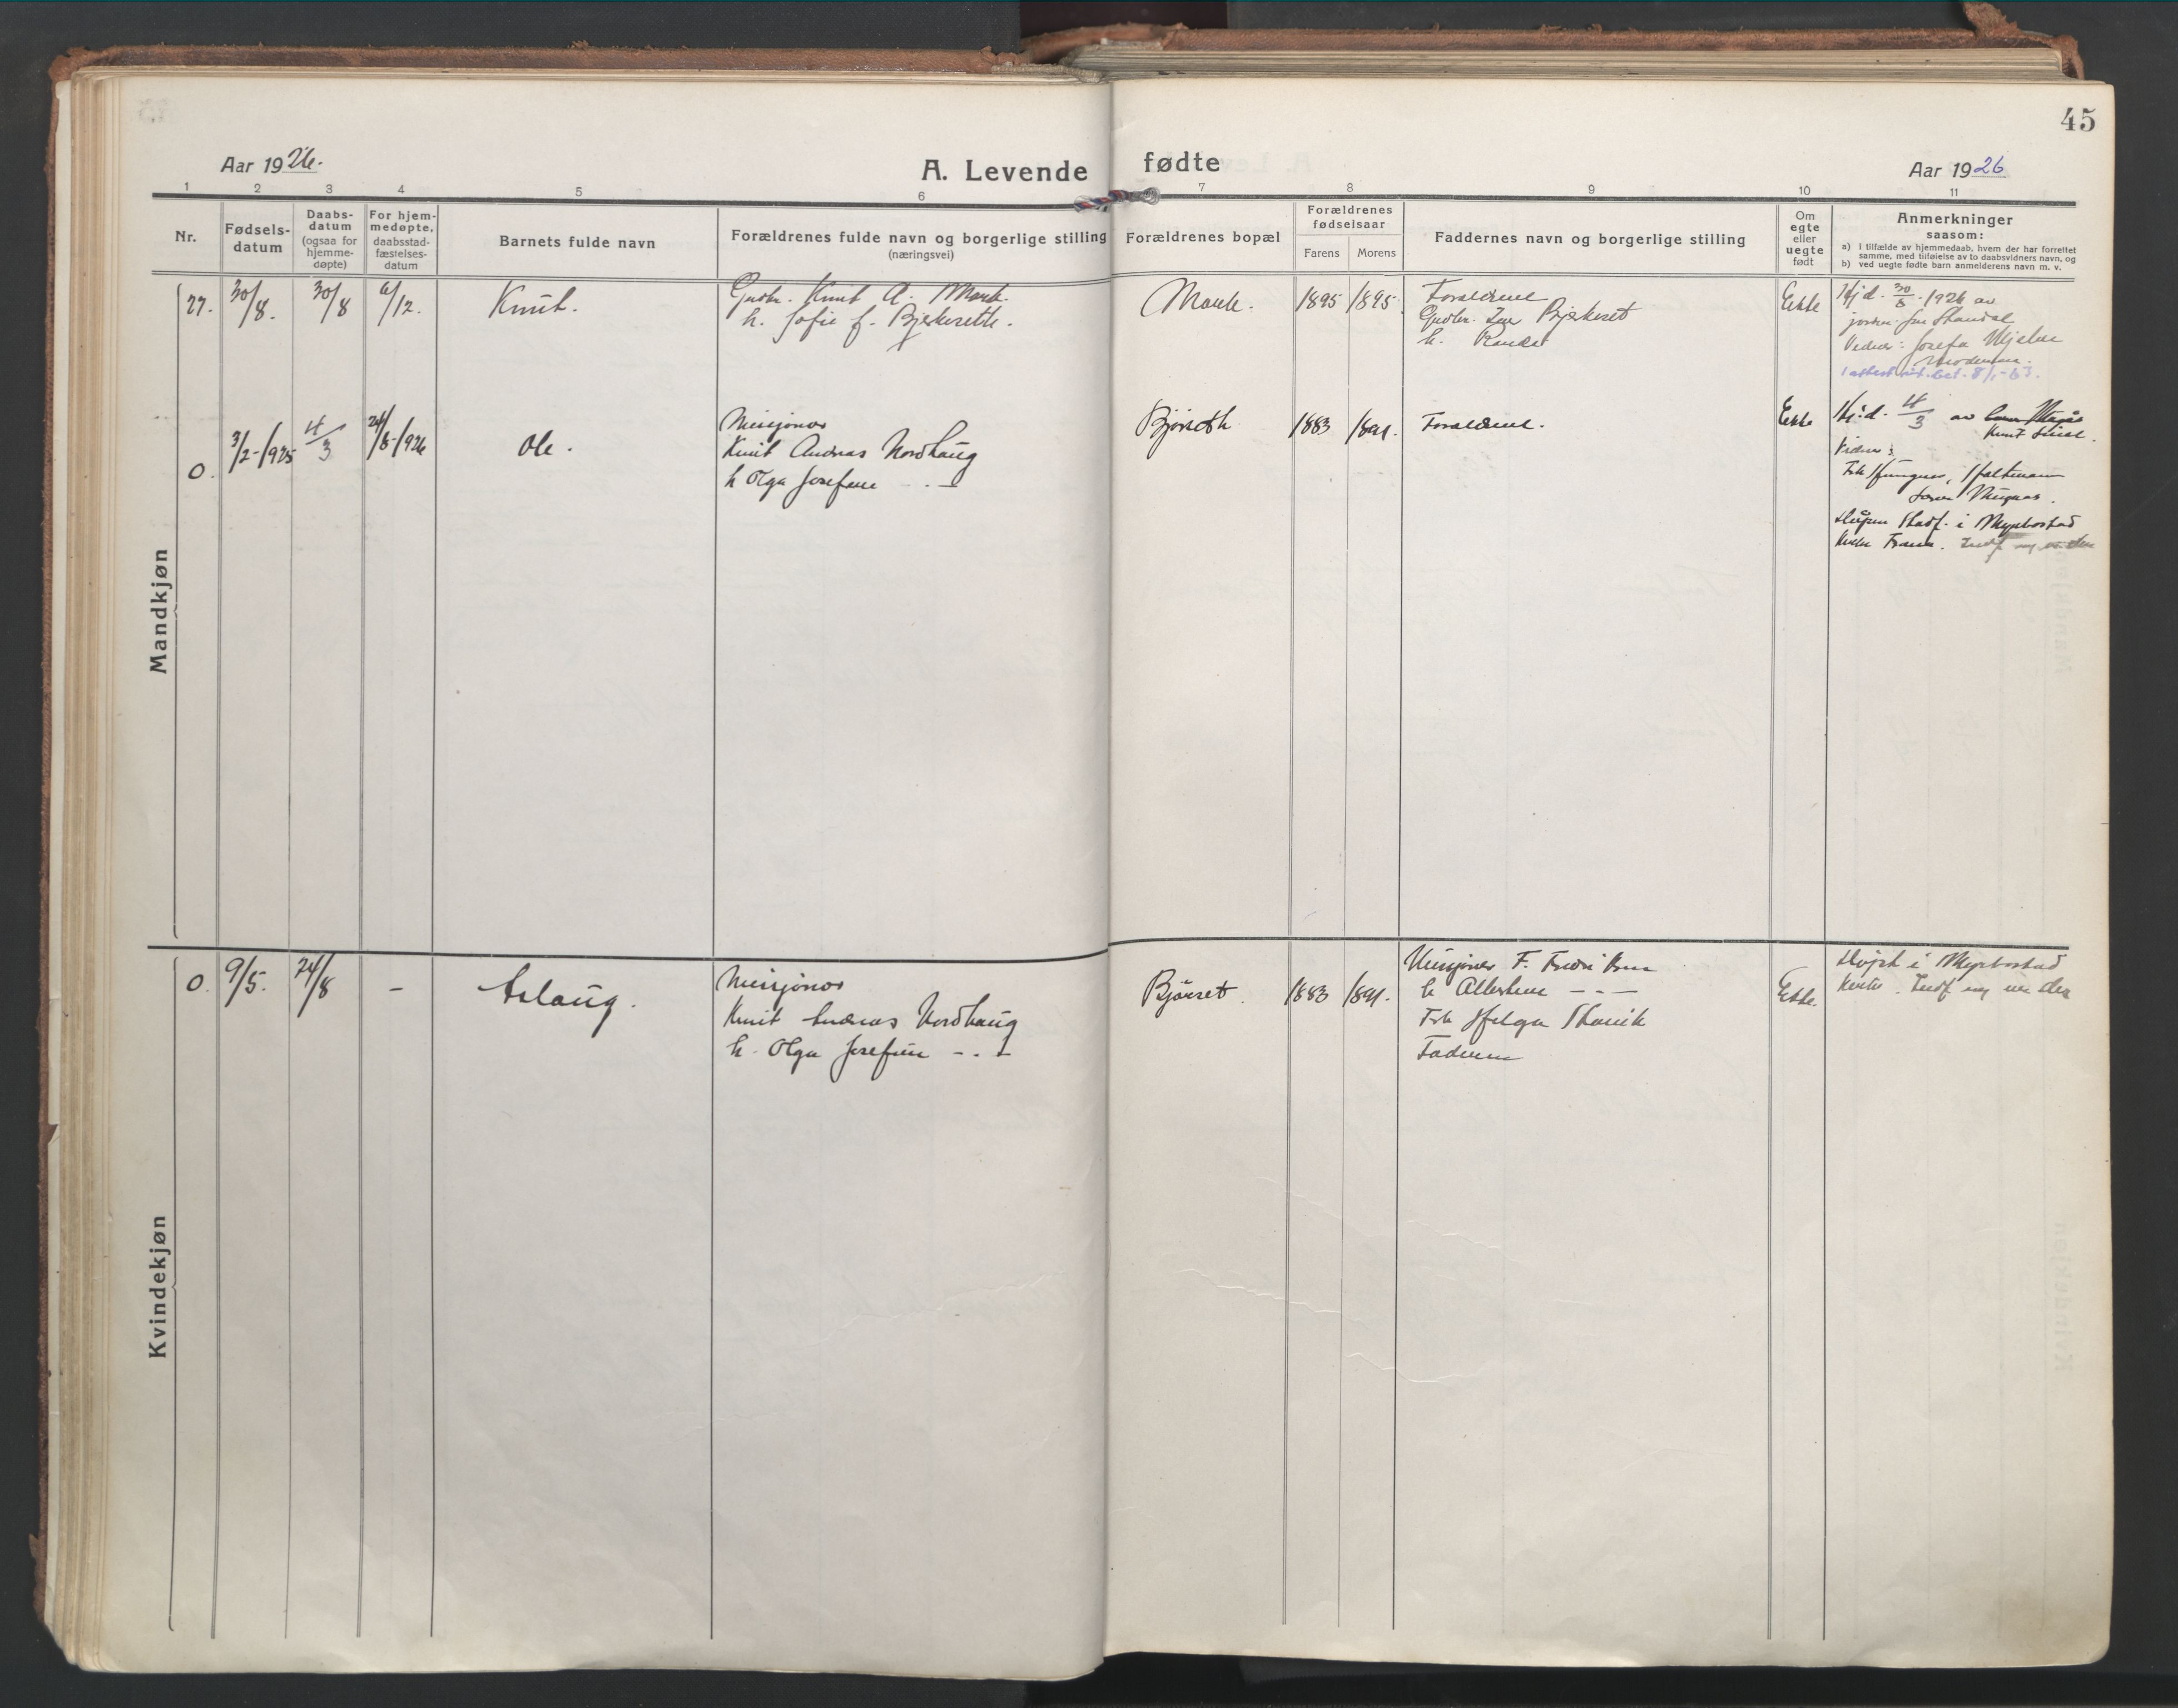 45
Aar 1926.
A. Levende fødte
Aar 1926
1 2 3 4 5 6 7 8 9 10 11
Nr.
Fødsels-
datum
Daabs-
datum
(ogsaa for
hjemme-
døpte)
For hjem-
medøpte,
daabsstad-
fæstelses-
datum
Barnets fulde navn
Forældrenes fulde navn og borgerlige stilling
(næringsvei)
Forældrenes bopæl
Forældrenes
fødselsaar
Farens Morens
Faddernes navn og borgerlige stilling
Om
egte
eller
uegte
født
Anmerkninger
saasom:
a) i tilfælde av hjemmedaab, hvem der har forrettet
samme, med tilføielse av to daabsvidners navn, og
b) ved uegte fødte barn anmelderens navn m. v.
Mandkjøn
27. 30/8. 30/8 6/12. Knut.
Gudbr. Knut A. Mork.
h. Sofie f. Bjerkeseth.
Mork. 1895 1895
Foraldrene
Gudbr. Iver Bjerkeset
h.
Ekte
Hjd. 30/8. 1926 av
Skandal
Josefa
8/1-63.
O. 3/2-1925 4/3 24/8-1926 Ole.
Misjonær
Knut Andreas Nordhaug
h Olga Josefine - . -
Bjørseth 1883 1891.
Foraldrene.
Ekte
Hj.d. 4/3 av
Knut
Vidner:
i Myrbostad
Kirke Fræna.
Kvindekjøn
O. 9/5. 24/8 - Aslaug.
Misjonær
Knut Andreas Nordhaug
h. Olga Josefine - . -
Bjørset. 1883 1891.
Misjonær F. Fredriksen
h - - -
Frk Helga
Faderen
Ekte.
Døpt i Myrbostad
Kirke.